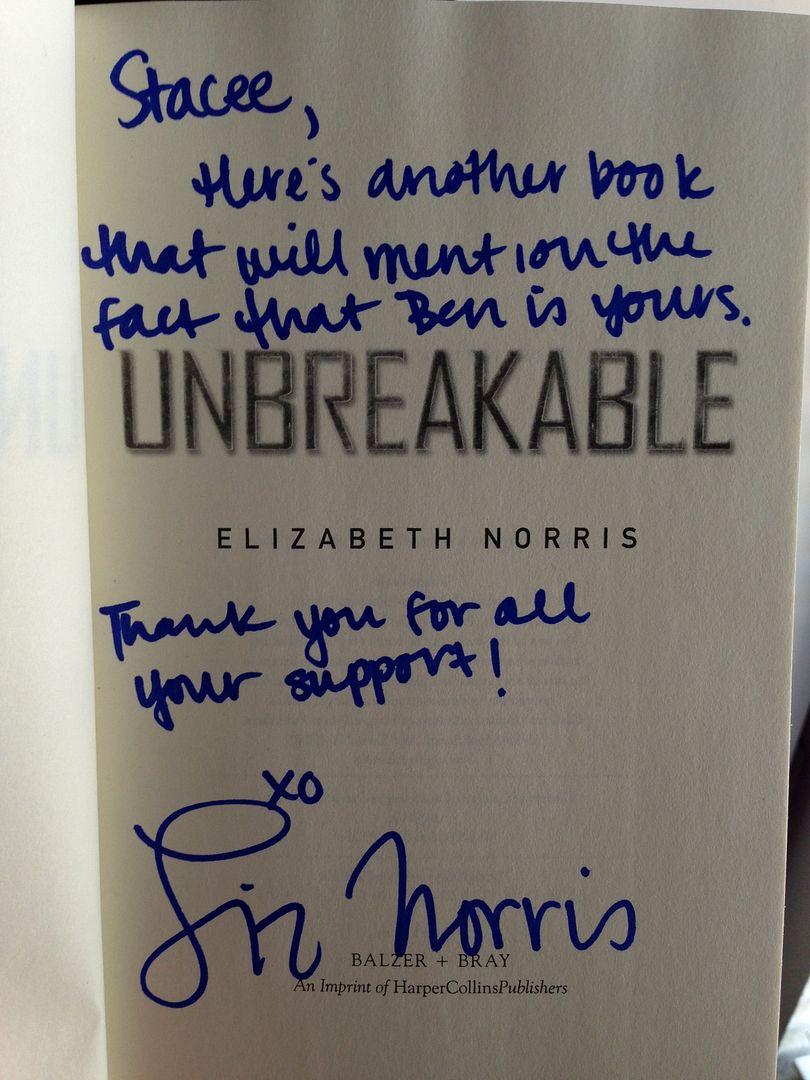 Stacee,
Here's another book
that will mention the
fact that Ben is yours.
UNBREAKABLE
ELIZABETH NORRIS
Thank you for all
your support!
xo
Liz Norris
BALZER + BRAY
An Imprint of HarperCollinsPublishers